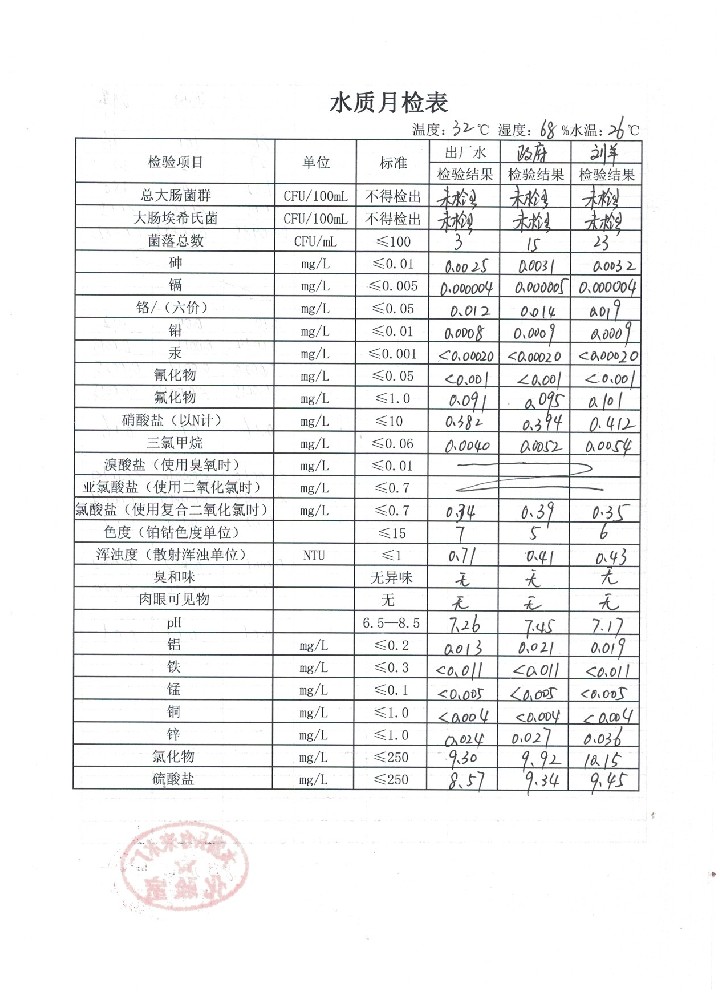 水质月检表
温度：32℃ 湿度：68％水温：26℃
检验项目 单位 标准 出厂水 政府 刘羊
检验结果 检验结果 检验结果
总大肠菌群 CFU/100mL 不得检出 未检出 未检出 未检出
大肠埃希氏菌 CFU/100mL 不得检出 未检出 未检出 未检出
菌落总数 CFU/mL ≤100 3 15 23
砷 mg/L ≤0.01 0.0025 0.0031 0.0032
镉 mg/L ≤0.005 0.000004 0.000005 0.000004
铬/（六价） mg/L ≤0.05 0.012 0.014 0.019
铅 mg/L ≤0.01 0.0008 0.0009 0.0009
汞 mg/L ≤0.001 <0.00020 <0.00020 <0.00020
氰化物 mg/L ≤0.05 <0.001 <0.001 <0.001
氟化物 mg/L ≤1.0 0.091 0.095 0.101
硝酸盐（以N计） mg/L ≤10 0.382 0.394 0.412
三氯甲烷 mg/L ≤0.06 0.0040 0.0052 0.0054
溴酸盐（使用臭氧时） mg/L ≤0.01
亚氯酸盐（使用二氧化氯时） mg/L ≤0.7
氯酸盐（使用复合二氧化氯时） mg/L ≤0.7 0.34 0.39 0.35
色度（铂钴色度单位） ≤15 7 5 6
浑浊度（散射浑浊单位） NTU ≤1 0.71 0.41 0.43
臭和味 无异味 无 无 无
肉眼可见物 无 无 无 无
pH 6.5—8.5 7.26 7.45 7.17
铝 mg/L ≤0.2 0.013 0.021 0.019
铁 mg/L ≤0.3 <0.011 <0.011 <0.011
锰 mg/L ≤0.1 <0.005 <0.005 <0.005
铜 mg/L ≤1.0 <0.004 <0.004 <0.004
锌 mg/L ≤1.0 0.024 0.027 0.036
氯化物 mg/L ≤250 9.30 9.92 10.15
硫酸盐 mg/L ≤250 8.57 9.34 9.45
化验室